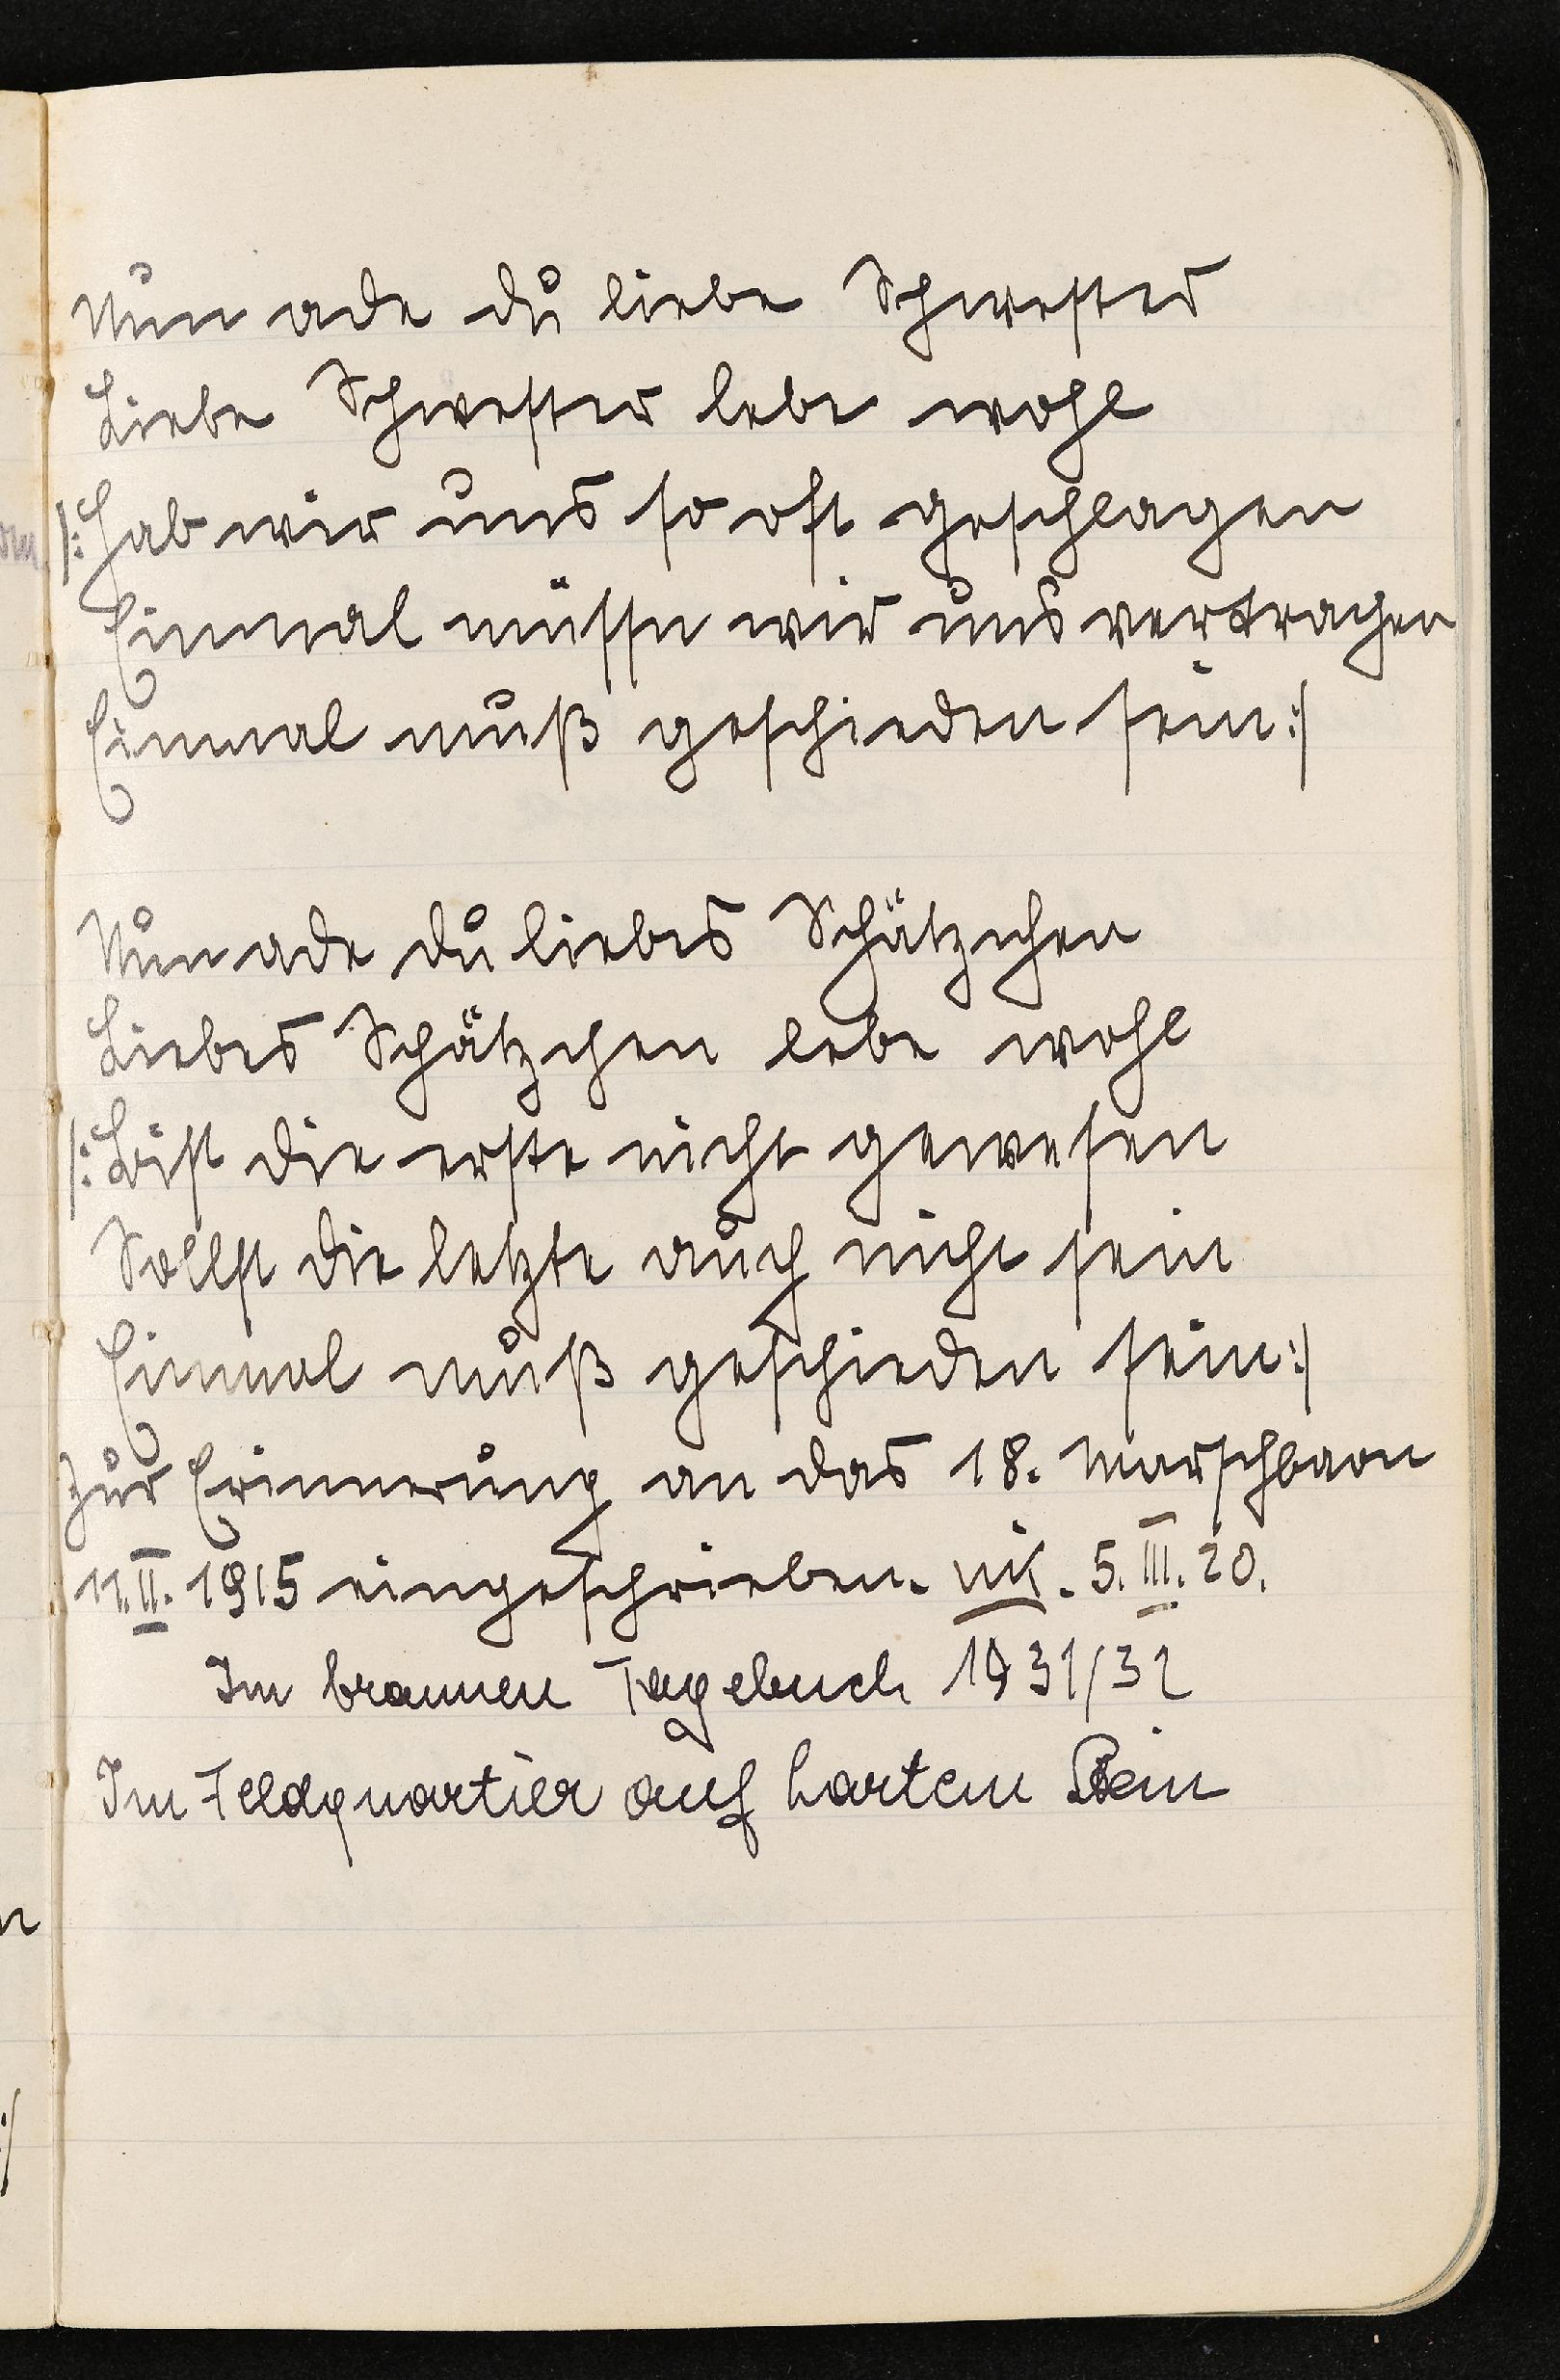 Nun ade du liebe Schwester
Liebe Schwester lebe wohl
/: Hab wir uns so oft geschlagen
Einmal müssn wir uns vertragen
Einmal muß geschieden sein :/
Nun ade du liebes Schätzchen
Liebes Schätzchen lebe wohl
/: Bist die erste nicht gewesen
Sollst die letzte auch nicht sein
Einmal muß geschieden sein :/
Zur Erinnerung an das 18. Marschbaon
11.II. 1915 eingeschrieben. 5.III.20.
Im braunen Tagebuch 1931/32
Im Feldquartier auf hartem Stein